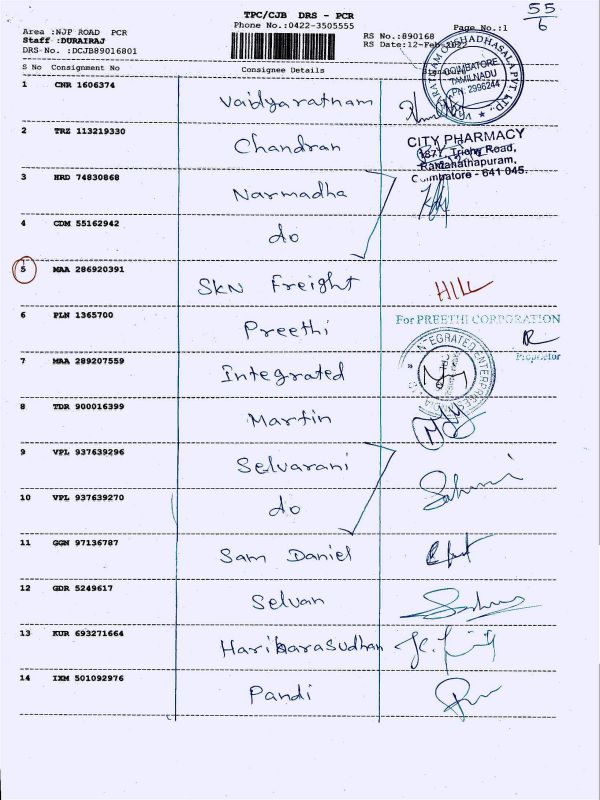 TPC/CJB DRS - PCR
55
6
Phone No.:0422-3505555
Area :NJP ROAD PCR
Staff :DURAIRAJ
DRS-No. :DCJB89016801
RS No.:890168
RS Date:12-Feb-2022
Page No.:1
S No Consignment No Consignee Details Signature
COIMBATORE
TAMILNADU
PH: 2996244
1 CNR 1606374 Vaidyaratnam
2 TRZ 113219330 Chandran
CITY PHARMACY
187/, Trichy Road,
Ramanathapuram,
Coimbatore - 641 045.
3 HRD 74830868 Narmadha
4 CDM 55162942 do
5 MAA 286920391 SKN Freight HILL
6 PLN 1365700 Preethi
For PREETHI CORPORATION
Proprietor
7 MAA 289207559 Integrated
INTEGRATED ENTERPRISES
8 TDR 900016399 Martin
9 VPL 937639296 Selvarani
10 VPL 937639270 do
11 GGN 97136787 Sam Daniel
12 GDR 5249617 Selvan
13 KUR 693271664 Hariharasudhan
14 IXM 501092976 Pandi